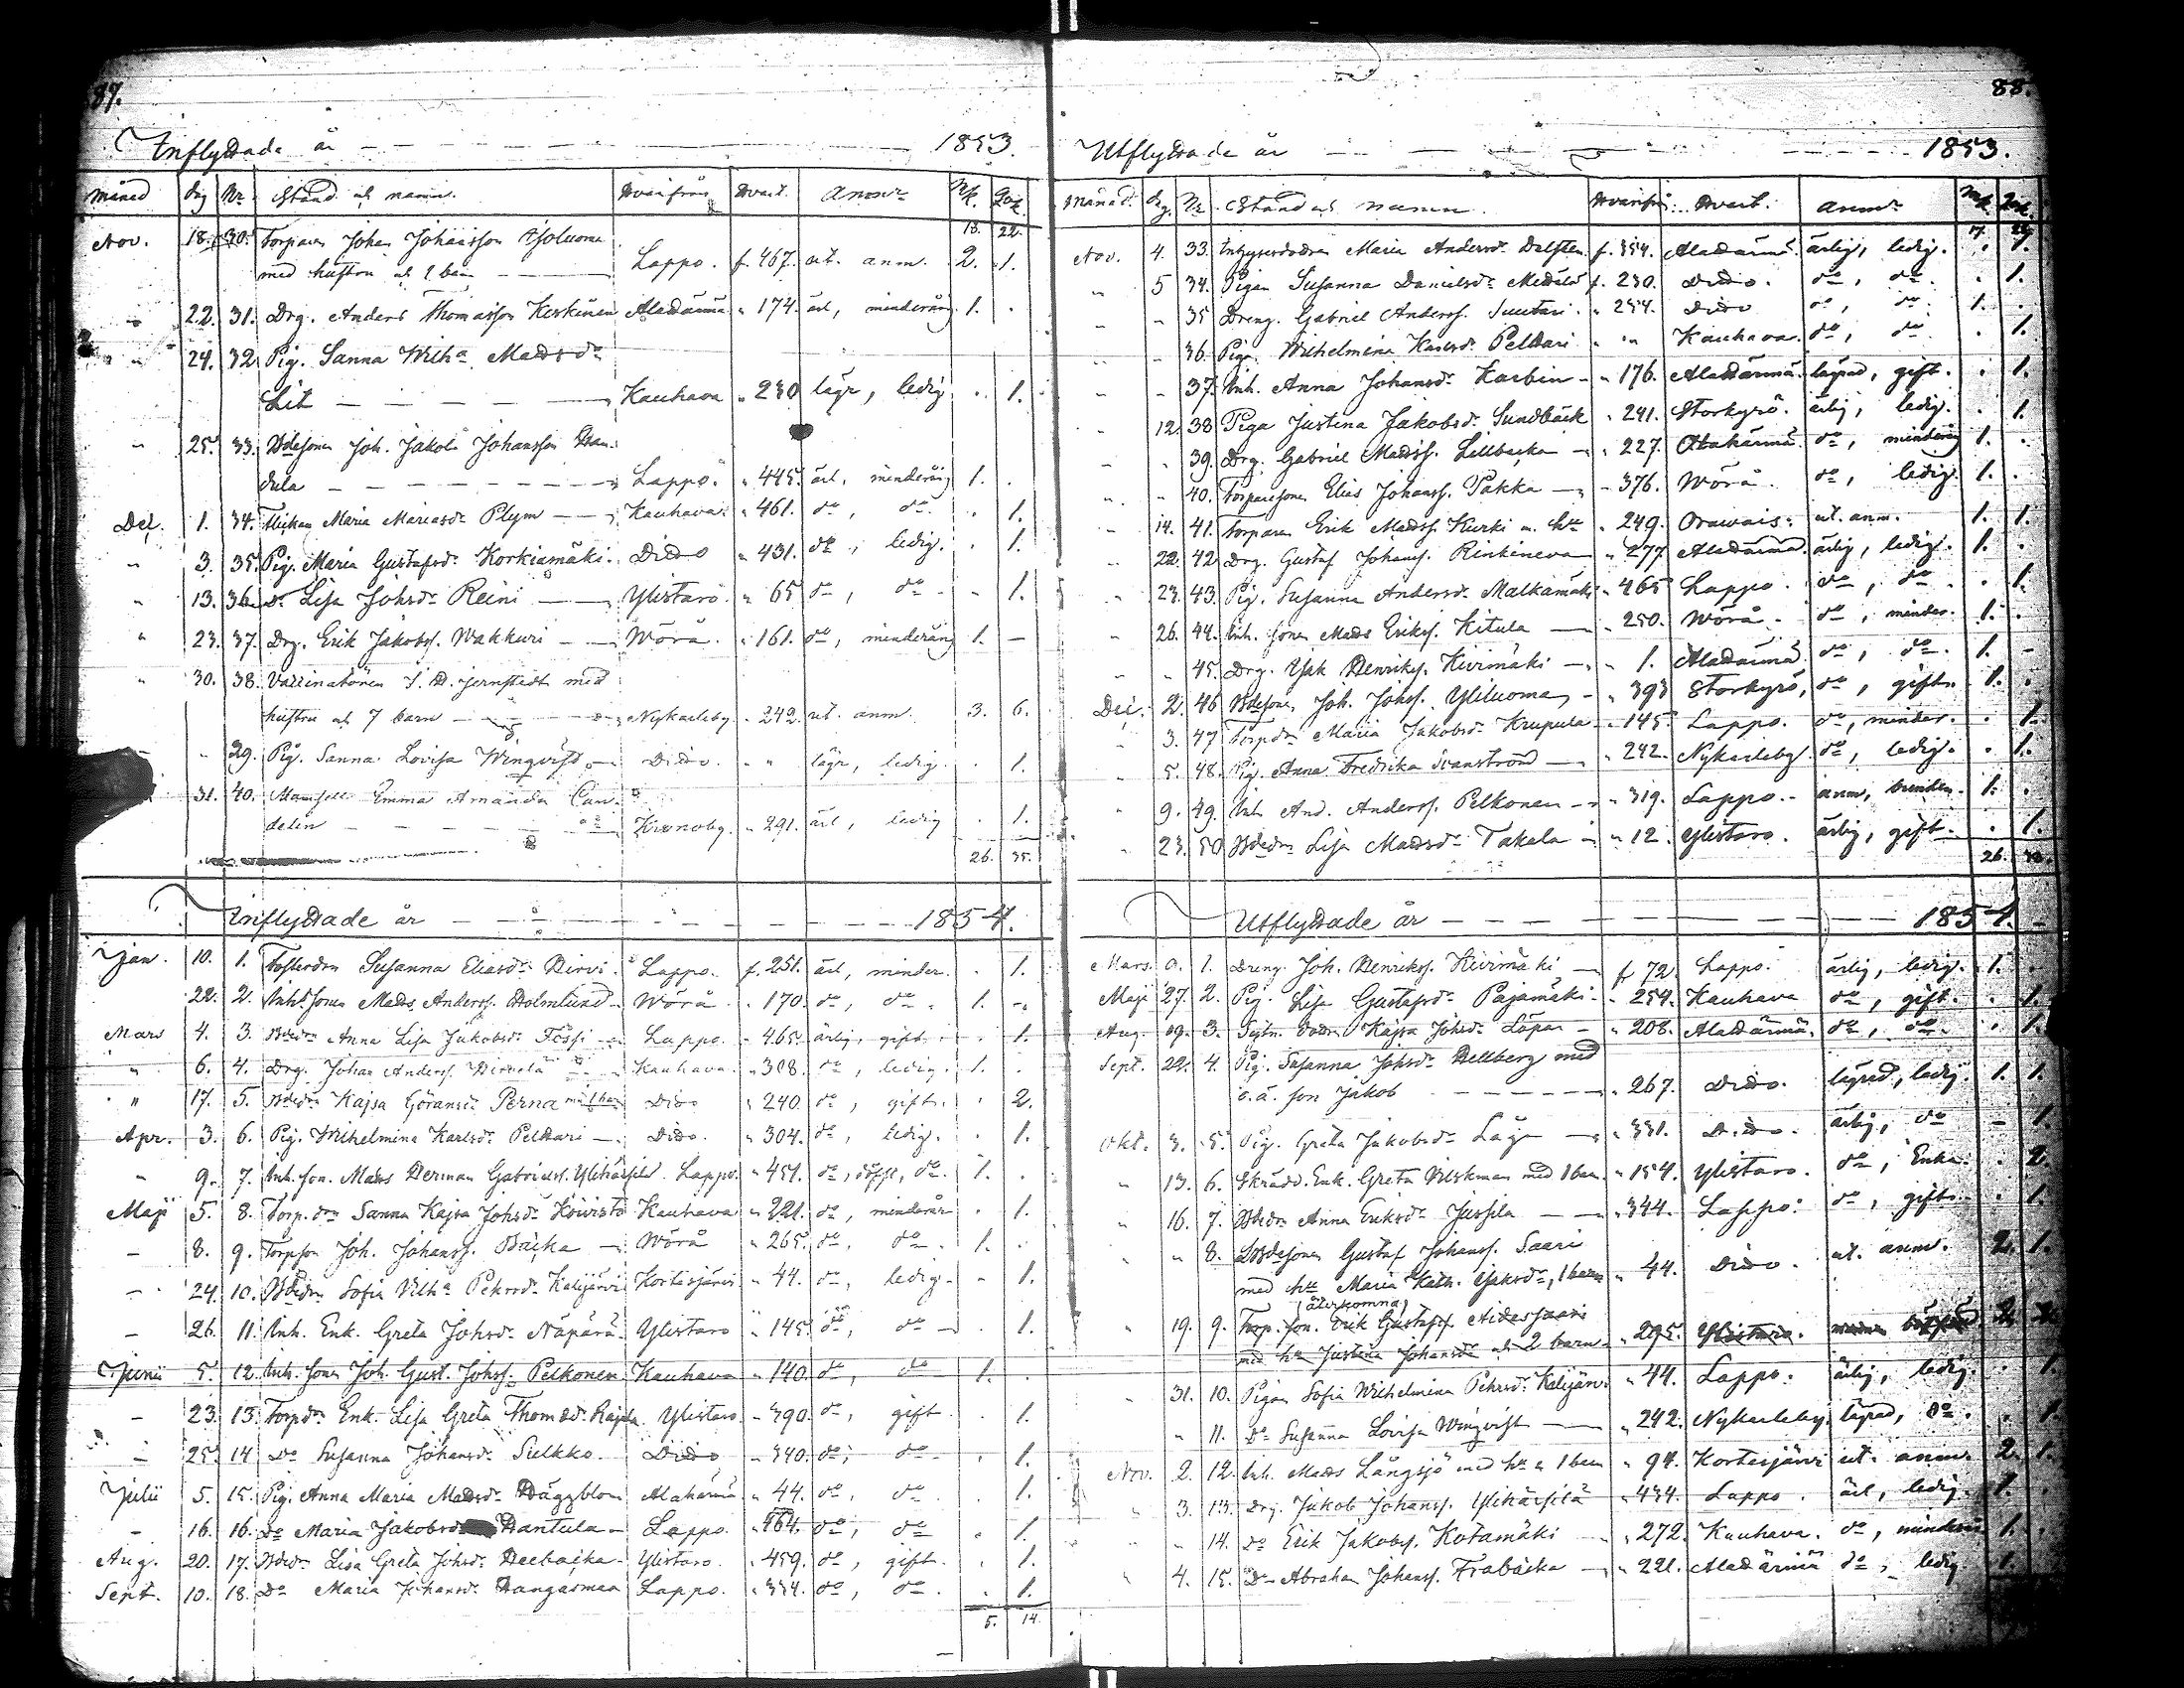 87.
Inflyttade år - - - 1853.
Månad Dag Nr. Stånd och namn. Hvarifrån Hvart. Anm:r Mk. Qvk.
18. 22.
Nov. 18. 30. Torparen Johan Johansson
med hustru och 2 barn Lappo. f. 467. ut. anm. 2. 1.
" 22. 31. Drg. Anders Thomasson Keskinen Alahärmä " 174. ärl, minderårig 1. .
" 24. 32. Pig. Sanna Wilha. Madsdr
Lit Kauhava " 230 lägr, ledig . 1.
" 25. 33. Bdesonen Joh. Jakob Johansson Han-
dula Lappo. " 445. ärl, minderårig 1. .
Dec. 1. 34. Flickan Maria Mariasdr Plym Kauhava " 461. do, do. . 1.
" 3. 35. Pig. Maria Gustafsdr Korkiamäki. Dido " 431. do, ledig. . 1.
" 13. 36. Do Lisa Johsdr Reini Ylistaro " 65 do, do - 1.
" 23. 37. Drg. Erik Jakobss. Wakkuri Wörå. " 161. do, minderårig 1. -
" 30. 38. Vaccinatören J. D. Jernstedt med
hustru och 7 barn Nykarleby " 242. ut. anm. 3. 6.
" " 39. Pig. Sanna Lovisa Winqvist Dido. " " lägr, ledig. . 1.
31. 40. Mamsell Emma Amanda Can-
delin Kronoby. " 291. ärl, ledig . 1.
26. 35.
Inflyttade år - - - 1854.
Jan. 10. 1. Fosterdrn Susanna Eliasdr Hirvi Lappo. f. 251. ärl, minder. . 1.
22. 2. Inh. Sonen Mads Anderss. Holmlund Wörå " 170. do, do. 1. -
Mars 4. 3. Bdedr Anna Lisa Jakobsdr Fössi Lappo. " 465. ärlig, gift. . 1.
" 6. 4. Drg. Johan Anderss. Hirvelä Kauhava. " 308. do, ledig. 1. .
" 17. 5. Bdedr Kajsa Göransdr Perna m 1 barn Dido " 240. do, gift. . 2.
Apr. 3. 6. Pig. Wilhelmina Karlsdr Peltari Dido. " 304. do, ledig. . 1.
" 9. 7. Inh. son. Mads Herman Gabrielss. Ylihärsilä Lappo. " 451. do, do. 1. .
Maji 5. 8. Torp. drn Sanna Kajsa Johsdr Koivisto Kauhava " 221. do, minderår. . 1.
- 8. 9. Torpson Joh. Johanss. Backa Wörå " 265. do. do. 1. .
- 24. 10. Bdedrn Sofia Vilha Pehrsdr Kalijärvi Kortesjärvi " 44. do, ledig. - 1.
- 26. 11. Inh. Enk. Greta Johsdr Näpärä. Ylistaro " 145. do, do 1.
Junii 5. 12. Inh. Sonen Joh. Gust. Johss. Pelkonen Kauhava " 140. do, do 1. .
- 23. 13. Torpdr. Enk. Lisa Greta Thomasdr Rajala Ylistaro " 390. do, gift . 1.
- 25. 14 Do Susanna Johansdr Sulkko. Dido " 340. do, do . 1.
Julii 5. 15. Pig. Anna Maria Madsdr Häggblom Alahärmä " 44. do, do. . 1.
- 16. 16. Do Maria Jakobsdr Hantula Lappo. " 464. do, do . 1.
Aug. 20. 17. Bdedr Lisa Greta Johsdr Ylistaro. " 459. do, gift. . 1.
Sept. 10. 18. Do Maria Johansdr Hangasmaa Lappo. " 334. do, do. . 1.
5. 14.
88.
Utflyttade år - - - 1853.
Månad. Dg. Nr Stånd och namn. Hvarifr. Hvart. Anm:r Mk. Qvk.
17. 29
Nov. 4. 33. Maria Andersdr Dalsten f. 354. Alahärmä. ärlig, ledig. . 1.
" 5 34. Pigan Susanna Danielsdr f. 230. Dido. do, do. . 1.
" - 35 Dreng. Gabriel Anderss. Suutari. " 254. Dido do, do. 1. .
" - 36. Piga. Wilhelmina Karlsdr Peltari " " Kauhava. do, do . 1.
" - 37. Inh. Anna Johansdr Karbin " 176. Alahärmä. lägrad, gift. . 1.
" 12. 38 Piga Justina Jakobsdr Sundbäck " 241. Storkyrö. ärlig, ledig. . 1.
" " 39. Drg. Gabriel Madss. Lillbacka " 227. Alahärmä. do, minderårig 1. .
" " 40. Torparesonen Elias Johanss. Pakka " 376. Wörå. do, ledig. 1. .
" 14. 41. Torparen Erik Madss. Kurki m. hu " 249. Orawais. ut. anm. 1. 1.
" 22. 42 Drg. Gustaf Johanss. Rinkineva " 277. Alahärmä. ärlig, ledig. 1. .
" 23. 43. Pig. Susanna Andersdr Malkamäki " 465 Lappo. do, do . 1.
" 26. 44. Inh. Sonen Mads Erikss. Kitula " 250. Wörå. do, minder. 1. .
" " 45. Drg. Isak Henrikss. Kivimäki " 1. Alahärmä. do, do. 1. -
Dec. 2. 46 Bdesonen Joh. Johss. Yliluoma " 393 Storkyrö, do, gift. 1. .
" 3. 47 Torpdr Maria Jakobsdr Krupula " 145. Lappo. do, minder. . 1.
" 5. 48. Pig. Anna Fredrika Svanström " 242. Nykarleby. do, ledig. . 1.
" 9. 49. Inh. And. Anderss. Pelkonen " 319. Lappo. 1. .
" 23. 50. Bdedr Lisa Madsdr Takala " 12. Ylistaro. ärlig, gift. . 1.
26.
Utflyttade år - - - 1854.
Mars. 1. Dreng. Joh. Henrikss. Kivimäki f. 72 Lappo. ärlig, ledig. 1. .
Maji 27. 2. Pig. Lisa Gustafsdr Pajamäki " 254. Kauhava do, gift. . 1.
Aug. 19. 3. Kajsa Johsdr Löpar " 208. Alahärmä. do, do. . 1.
Sept. 22. 4. Pig. Susanna Johsdr Hellberg med
o. ä. son Jakob " 267. Dido. lägrad, ledig. 1. 1.
Okt. 3. 5. Pig. Greta Jakobsdr Låge " 331. Dido. ärlig, do - 1.
" 13. 6. Skrädd. Enk. Greta Vilskman med 1 barn " 154. Ylistaro. do, Enka. . 2.
" 16. 7. Bdedr Anna Eriksdr Jussila " 344. Lappo. do, gift. . 1.
" " 8. Bdesonen Gustaf Johanss. Saari
med hu Maria Kath. Isaksdr, 1 barn " 44. Dido. ut. anm. 2. 1.
(återkomna)
" 19. 9. Torp. son. Erik Gustafss.
med hu Justina Johansdr och 2 barn " 295. Ylistaro.
" 31. 10. Pigan Sofia Wilhelmina Pehrsdr Kalijärvi " 44. Lappo. ärlig, ledig. . 1.
" 11. Do Susanna Lovisa Winqvist " 242. Nykarleby. lägrad, do. . 1.
Nov. 2. 12. Inh. Mads Långsjö med hu o 1 barn " 94. Kortesjärvi ut. anm. 2. 1.
" 3. 13. Drg. Jakob Johanss. Ylihärsilä " 434. Lappo. ärl, ledig. 1. .
" " 14. do Erik Jakobss. Kotamäki " 272. Kauhava. do, minderår 1. .
" 4. 15. Do Abraham Johanss. Frabacka " 221. Alahärmä do, ledig. 1.